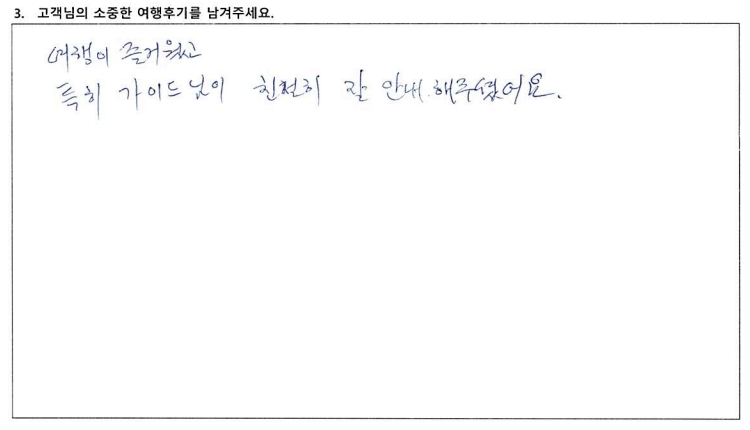 3. 고객님의 소중한 여행후기를 남겨주세요.
여행이 즐거웠고
특히 가이드님이 친절히 잘 안내 해주셨어요.